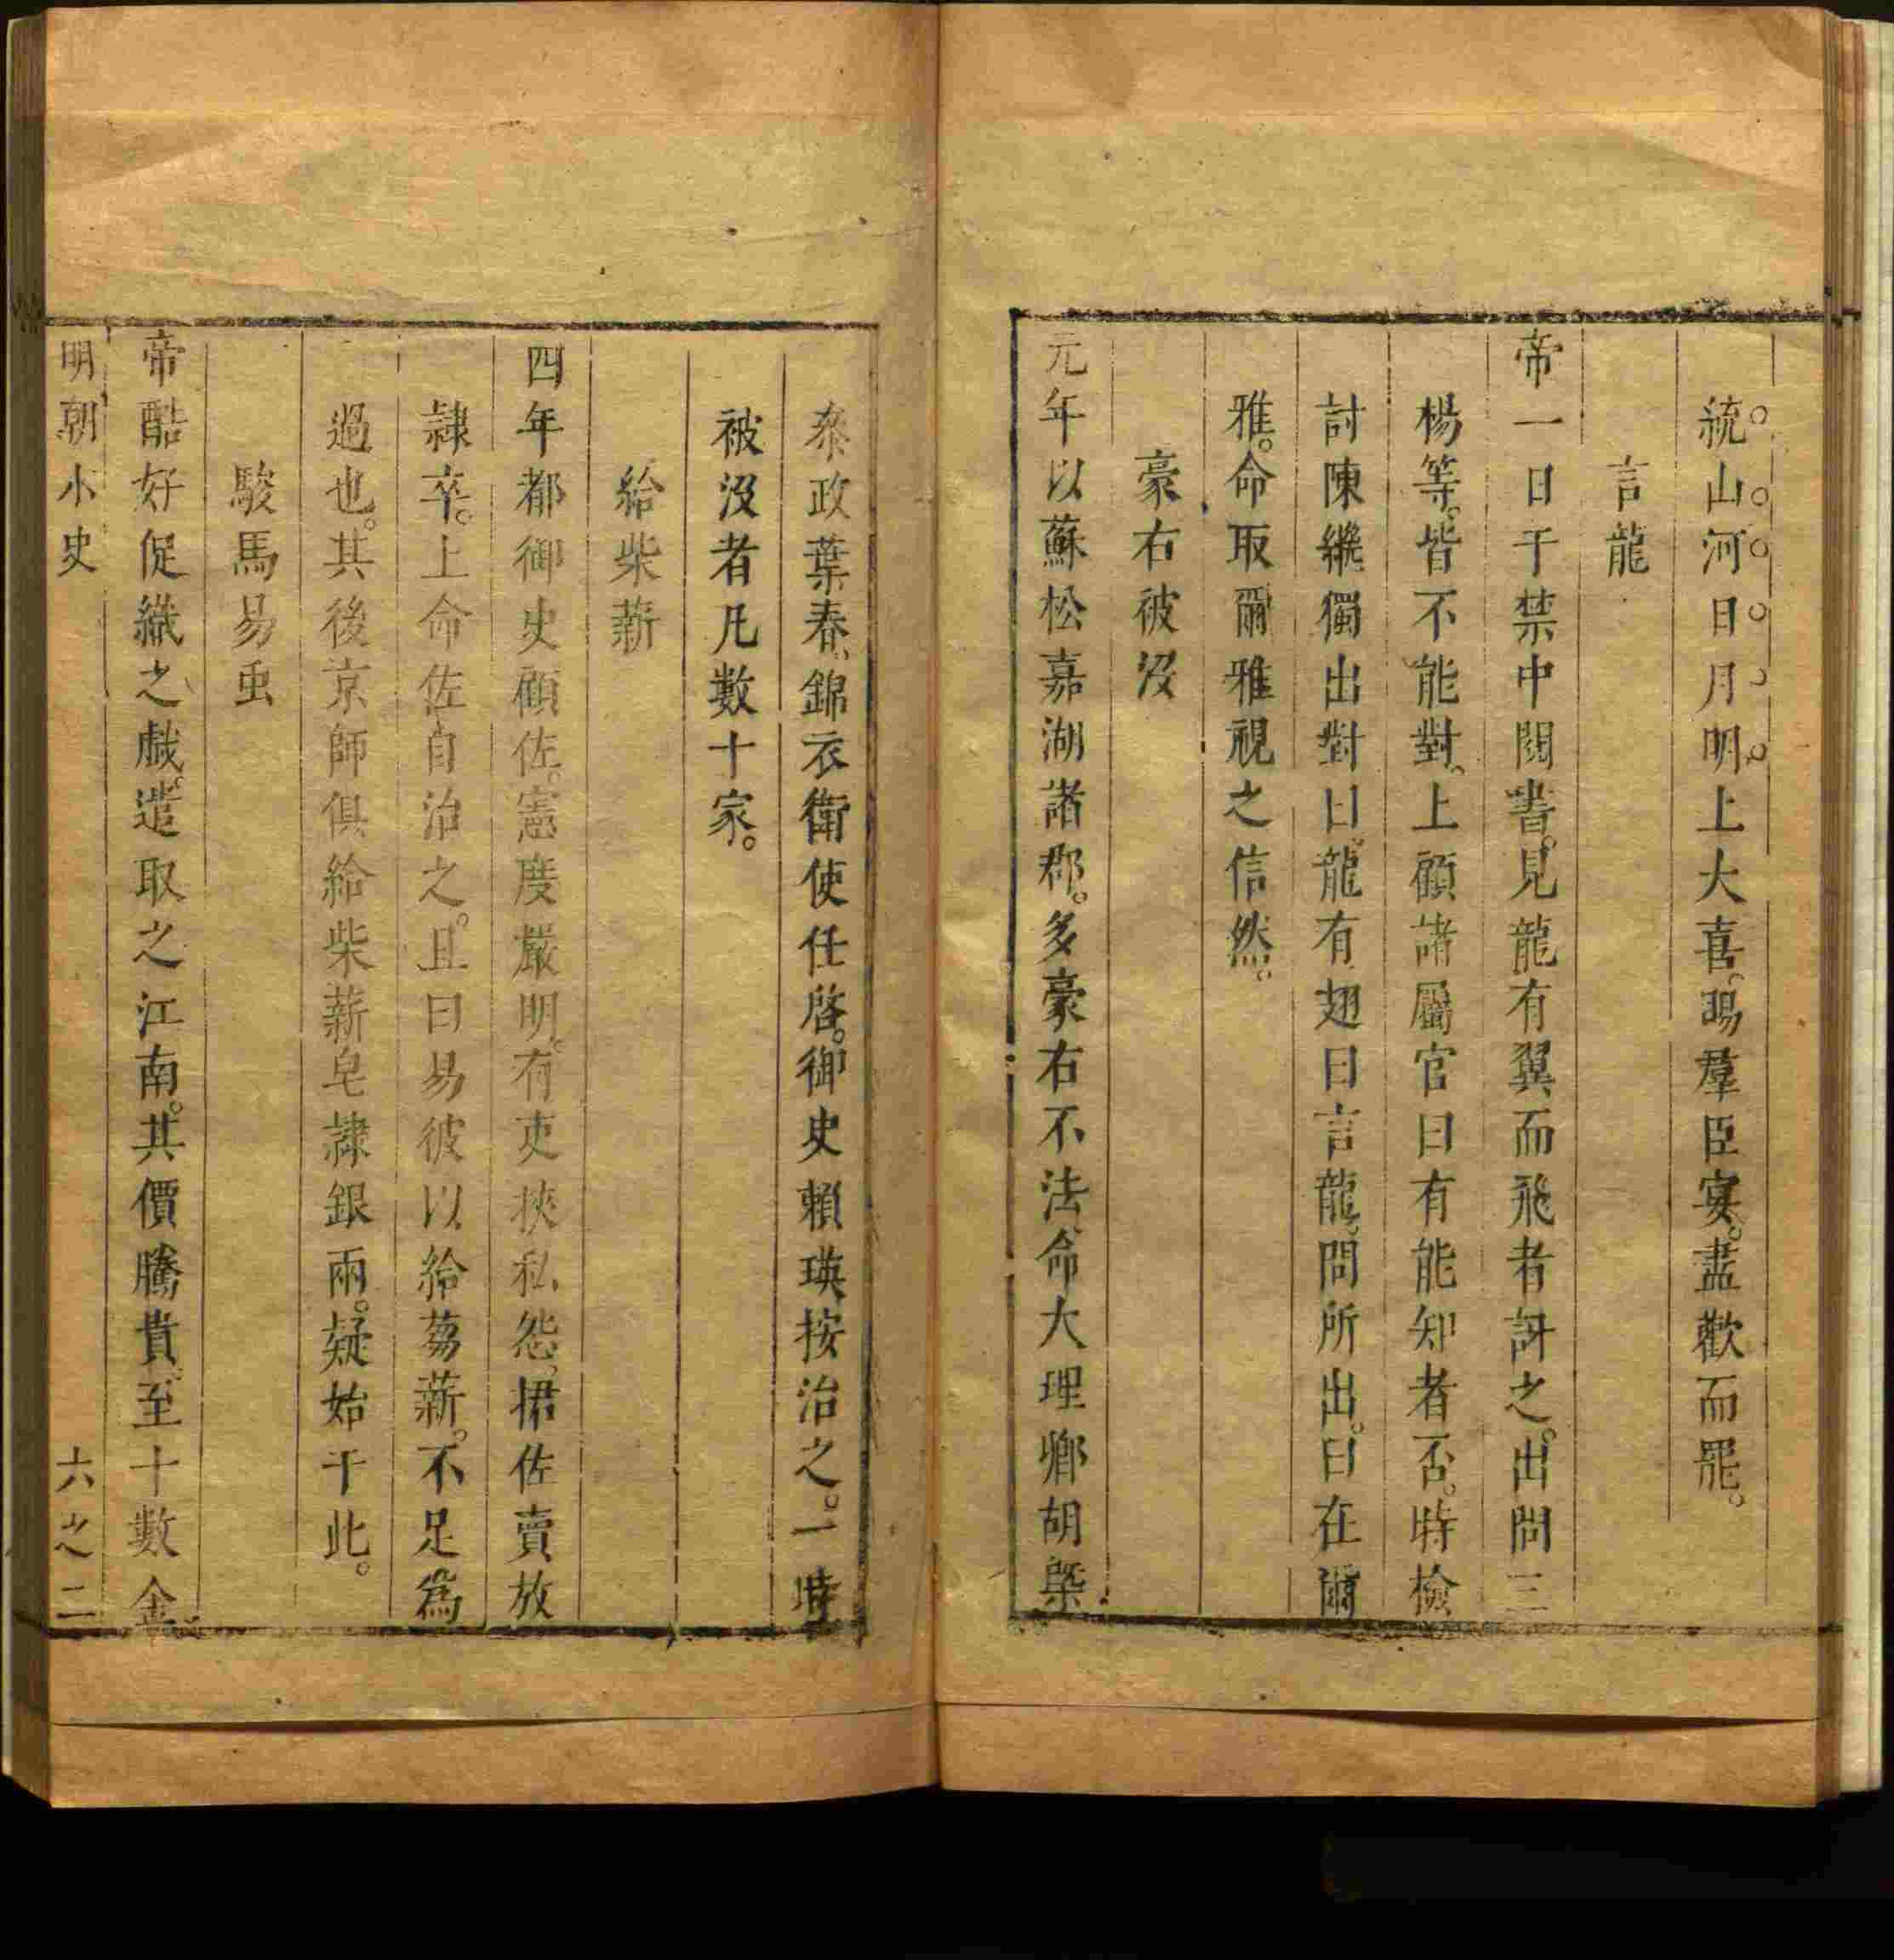 統山河日月明上大喜。賜羣臣宴。盡歡而罷。
言龍
帝一日于禁中閱書。見龍有翼而飛者訝之。出問三
楊等。皆不能對。上顧諸屬官曰有能知者否。時檢
討陳繼獨出對曰。龍有翅曰言龍。問所出。曰在爾
雅。命取爾雅視之信然。
豪右被沒
元年以蘇松嘉湖諸郡。多豪右不法命大理卿胡槩
叅政葉春、錦衣衛使任啓。御史賴瑛按治之。一時
被沒者凡數十家。
給柴薪
四年都御史顧佐。憲度嚴明。有吏挾私怨、捃佐賣放
隷卒。上命佐自治之。且曰易彼以給芻薪。不足爲
過也。其後京師俱給柴薪皂隷銀兩。疑始于此。
駿馬易虫
帝酷好促織之戲。遣取之江南。其價騰貴、至十數金
明朝小史 六之二